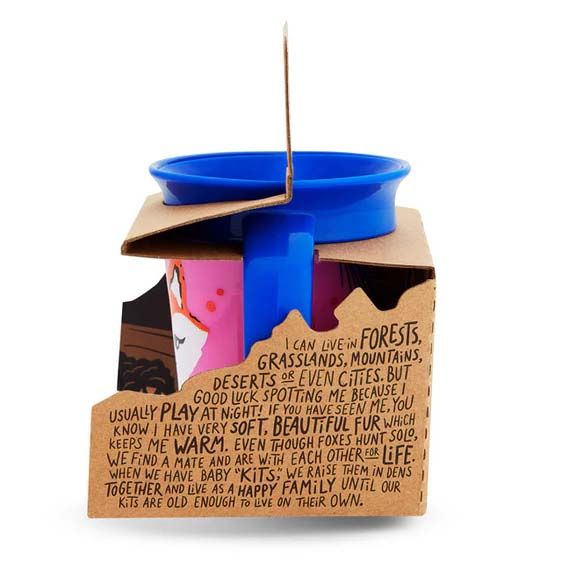 I CAN LIVE IN FORESTS,
GRASSLANDS, MOUNTAINS,
DESERTS OR EVEN CITIES. BUT
GOOD LUCK SPOTTING ME BECAUSE I
USUALLY PLAY AT NIGHT! IF YOU HAVE SEEN ME, YOU
KNOW I HAVE VERY SOFT, BEAUTIFUL FUR WHICH
KEEPS ME WARM. EVEN THOUGH FOXES HUNT SOLO,
WE FIND A MATE AND ARE WITH EACH OTHER FOR LIFE.
WHEN WE HAVE BABY "KITS", WE RAISE THEM IN DENS
TOGETHER AND LIVE AS A HAPPY FAMILY UNTIL OUR
KITS ARE OLD ENOUGH TO LIVE ON THEIR OWN.